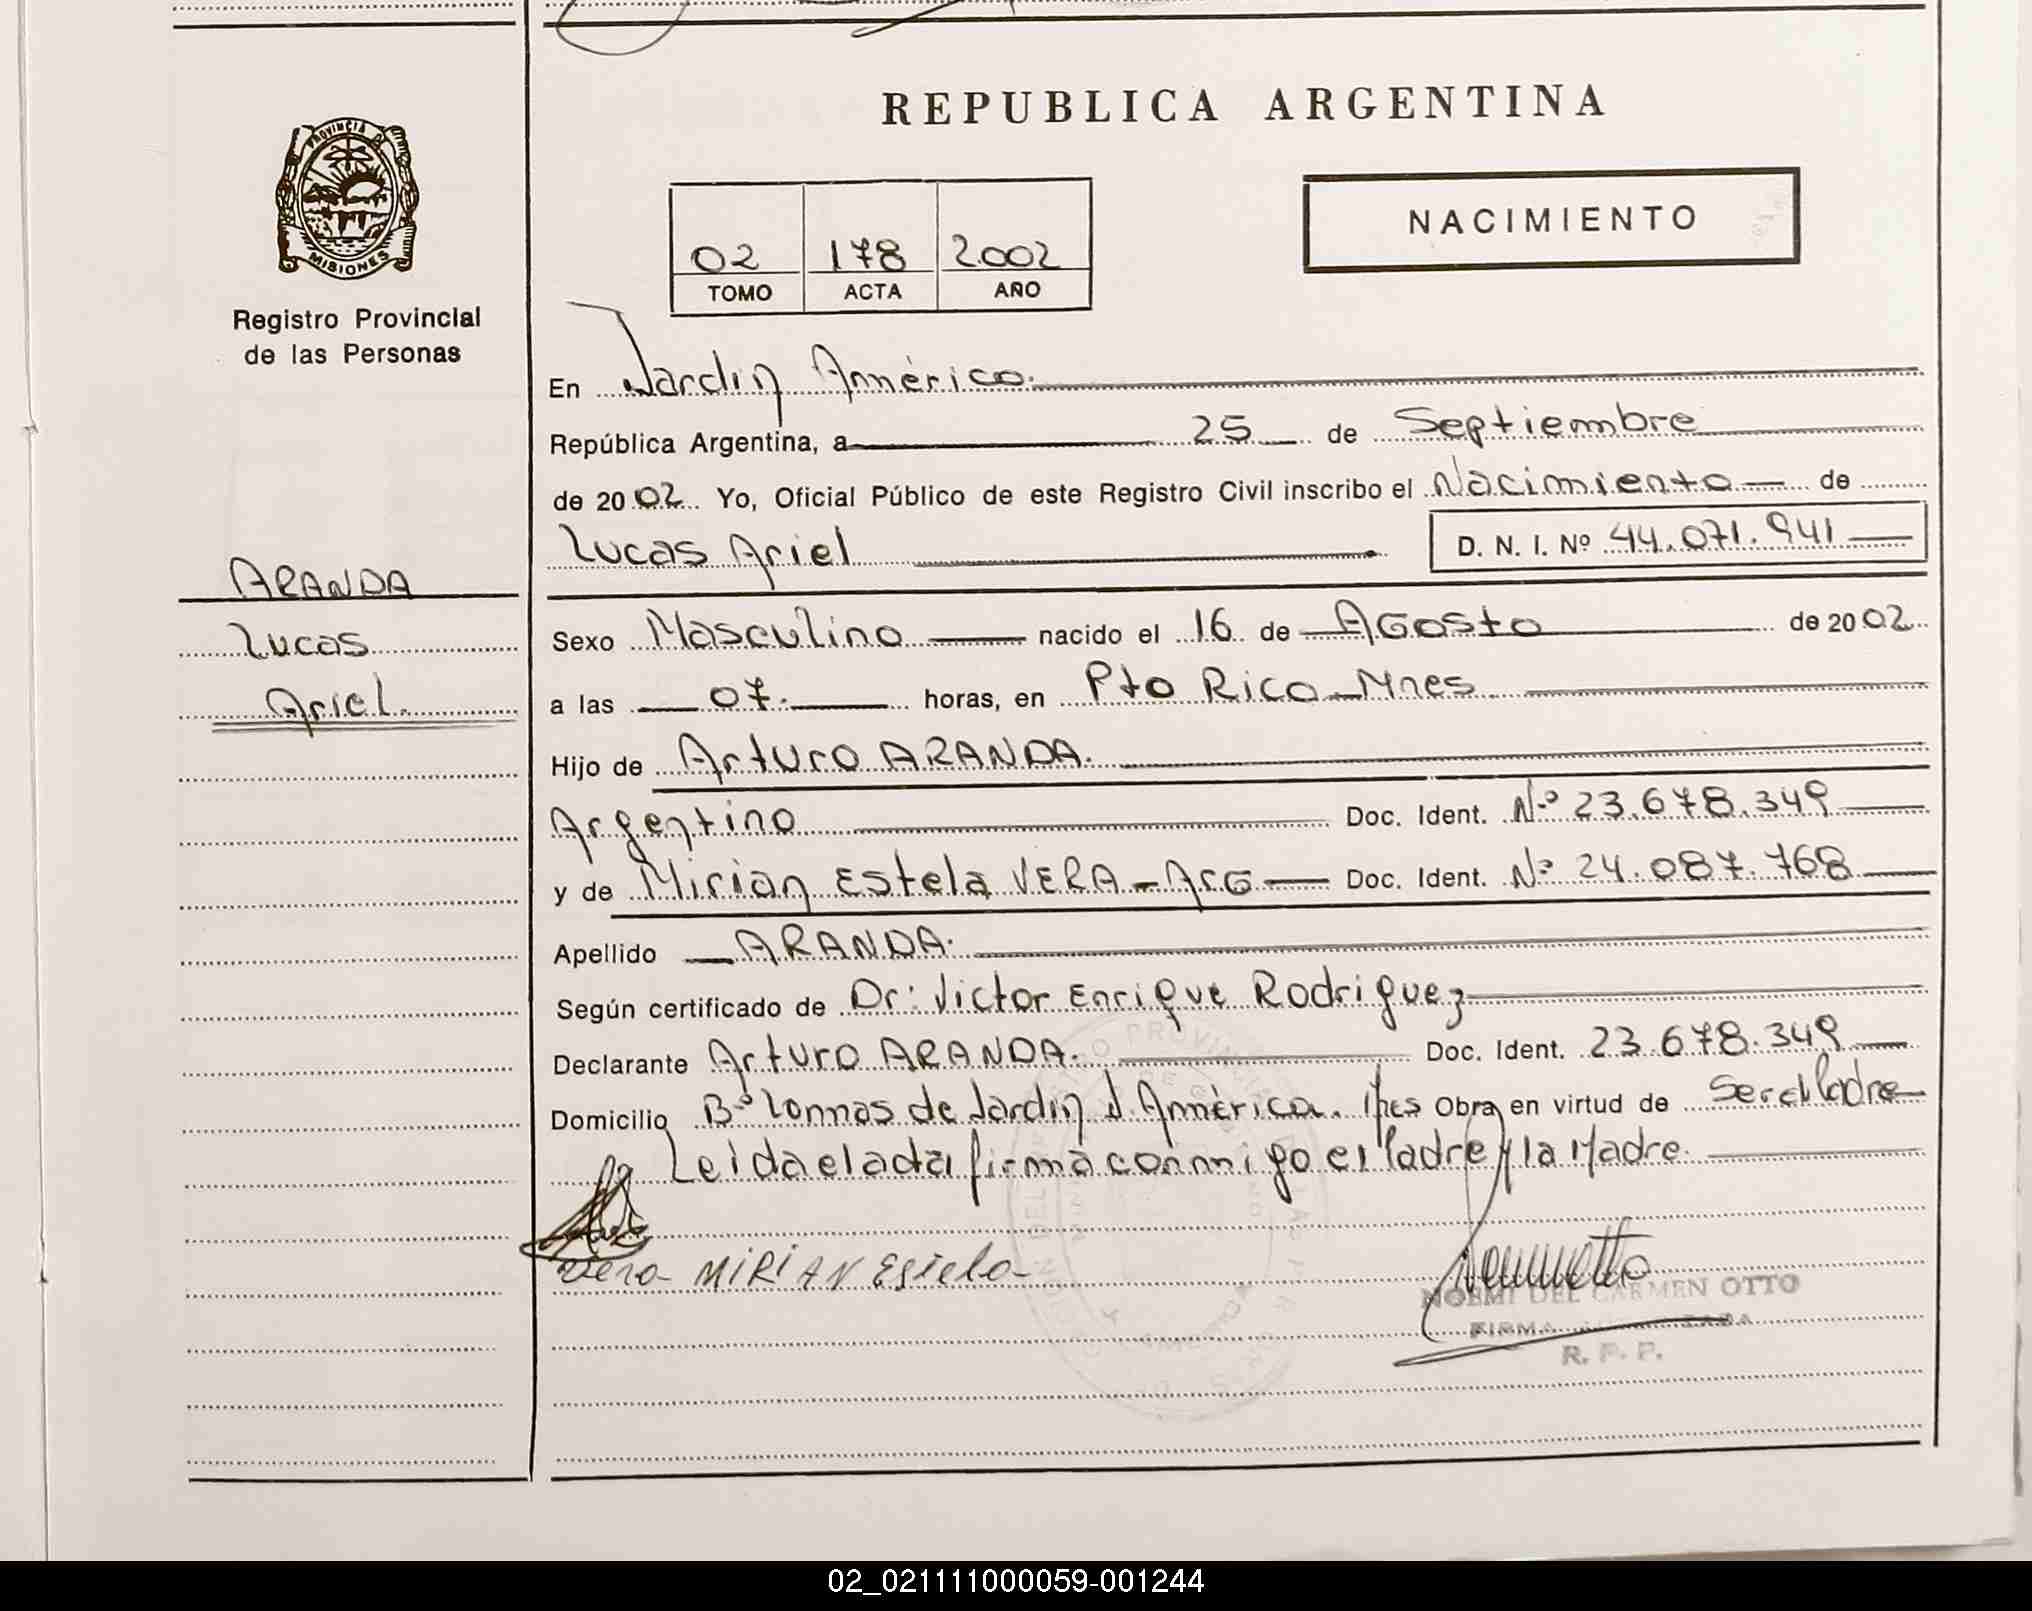 REPUBLICA ARGENTINA
PROVINCIA DE
MISIONES
Registro Provincial
de las Personas
NACIMIENTO
02 178 2002
TOMO ACTA AÑO
En Jardin América.
República Argentina, a 25 de Septiembre
de 2002 Yo, Oficial Público de este Registro Civil inscribo el Nacimiento de
Lucas Ariel D. N. I. Nº 44.071.941
ARANDA
Lucas
Ariel.
Sexo Masculino nacido el 16 de Agosto de 2002
a las 07. horas, en Pto Rico - Mnes
Hijo de Arturo ARANDA.
Argentino Doc. Ident. Nº 23.678.349
y de Mirian Estela VERA - Arg Doc. Ident. Nº 24.087.768
Apellido ARANDA.
Según certificado de Dr: Victor Enrique Rodriguez
Declarante Arturo ARANDA. Doc. Ident. 23.678.349
Domicilio Bº Lomas de Jardin J. América. Obra en virtud de Ser el Padre
Leida el acta firma conmigo el Padre y la Madre.
Vera MIRIAN Estela
NOEMI DEL CARMEN OTTO
FIRMA
R. P. P.
02_021111000059-001244